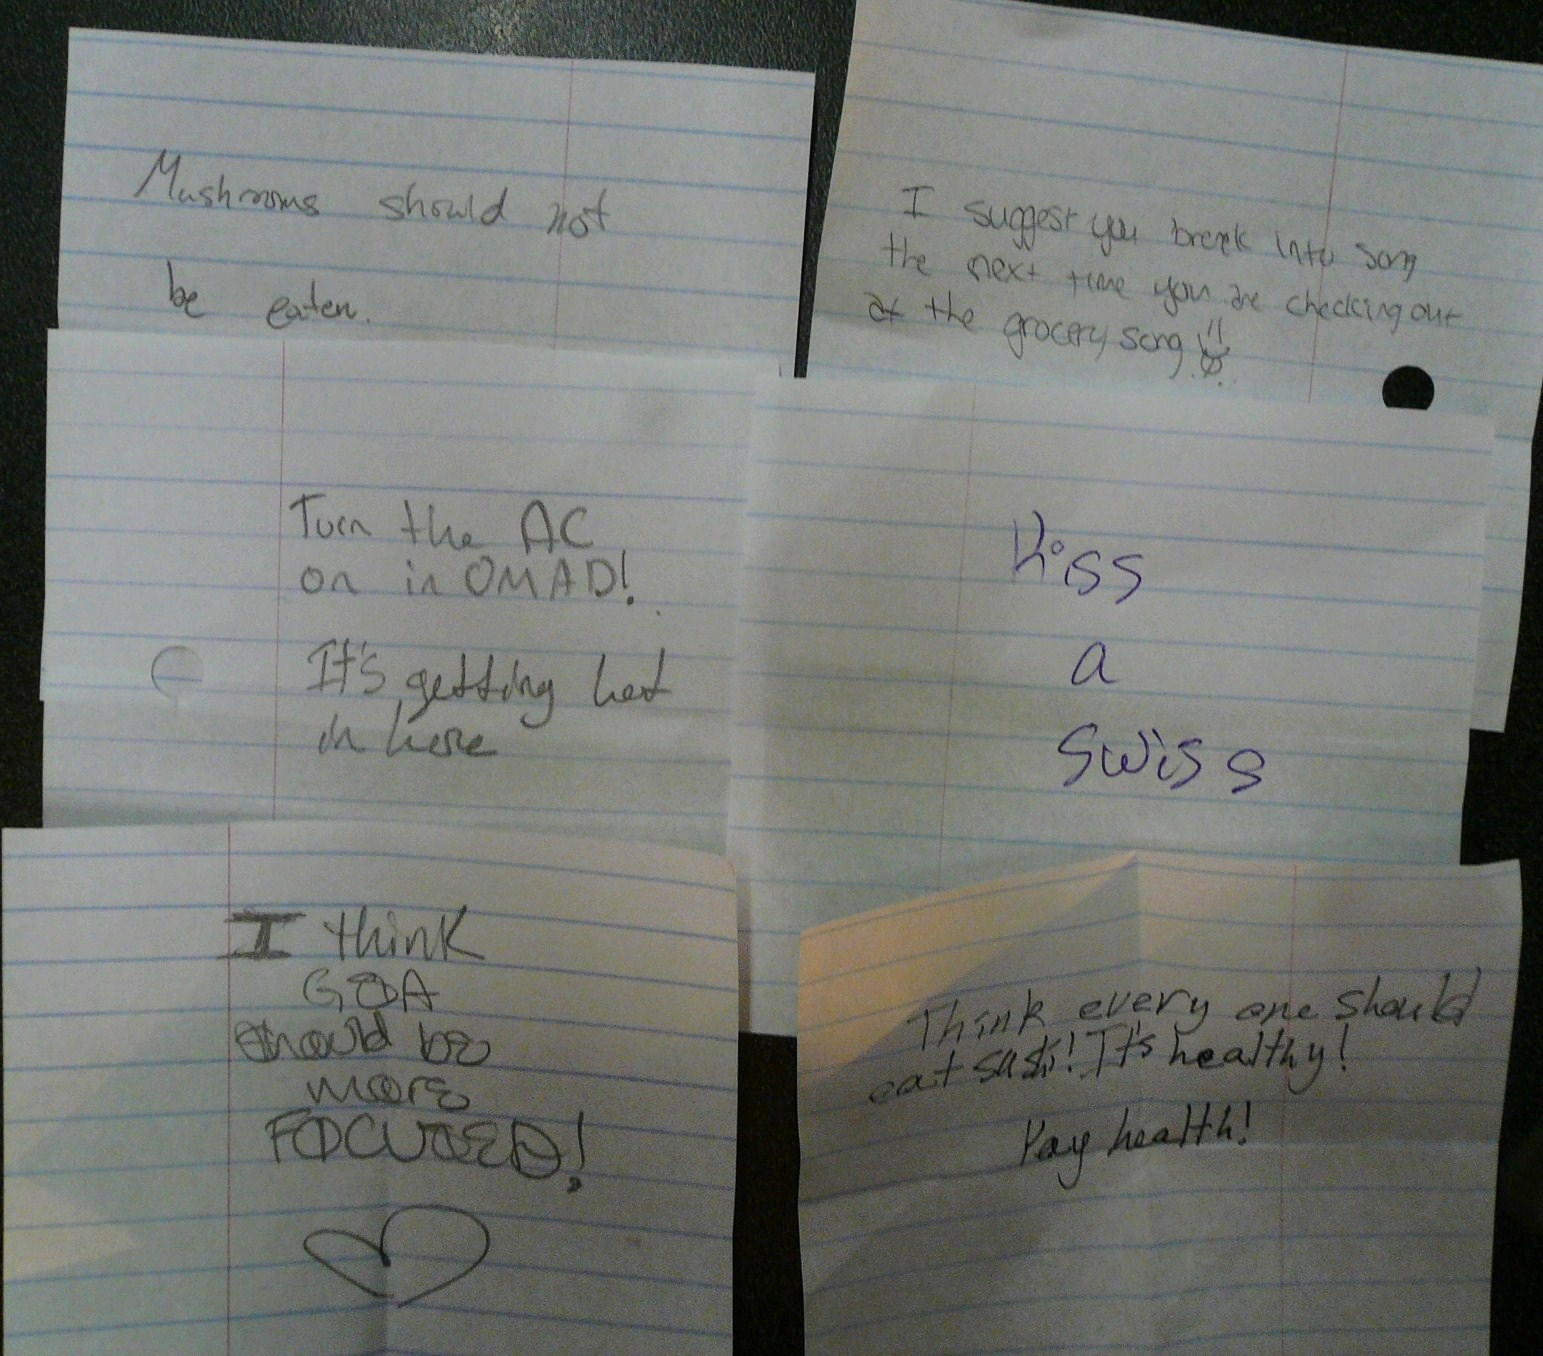 Mushrooms should not
be eaten.
I suggest you break into song
the next time you are checking out
at the grocery song
Turn the AC
on in OMAD!
It's getting hot
in here
Kiss
a
Swiss
I think
GOA
should be
more
FOCUSED!
Think every one should
eat sushi! It's healthy!
Yay health!